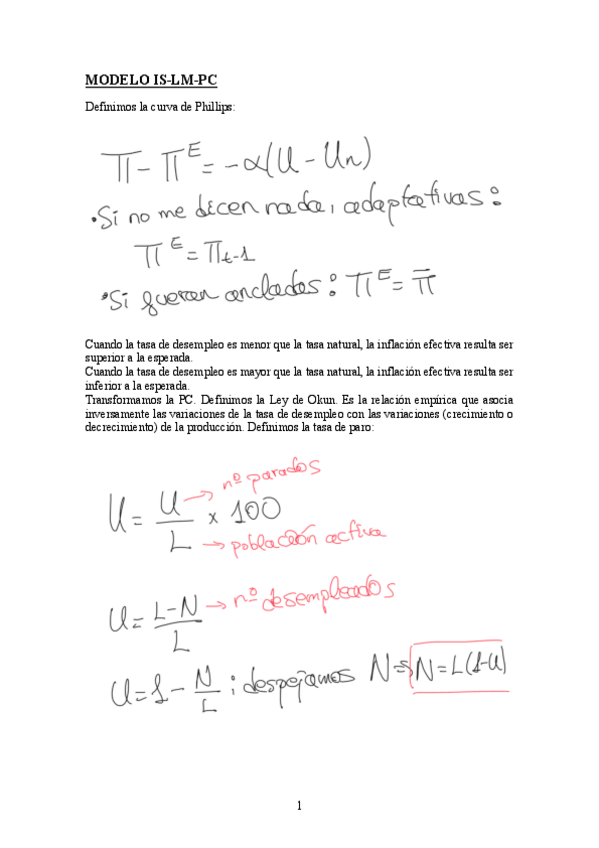 MODELO IS-LM-PC
Definimos la curva de Phillips:
π - π^E = -α(u - un)
• Si no me dicen nada, adaptativas:
π^E = πt-1
• Si fueran anclados: π^E = π̄
Cuando la tasa de desempleo es menor que la tasa natural, la inflación efectiva resulta ser
superior a la esperada.
Cuando la tasa de desempleo es mayor que la tasa natural, la inflación efectiva resulta ser
inferior a la esperada.
Transformamos la PC. Definimos la Ley de Okun. Es la relación empírica que asocia
inversamente las variaciones de la tasa de desempleo con las variaciones (crecimiento o
decrecimiento) de la producción. Definimos la tasa de paro:
u = U/L x 100
→ nº parados
→ población activa
u = L-N/L → nº desempleados
u = 1 - N/L ; despejamos N ⇒ N = L(1-u)
1